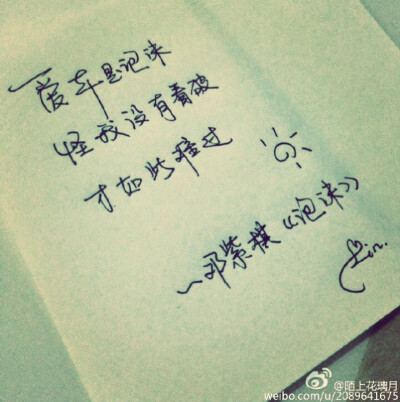 爱本是泡沫
怪我没有看破
才如此难过
~邓紫棋《泡沫》
@陌上花璃月
weibo.com/u/2089641675